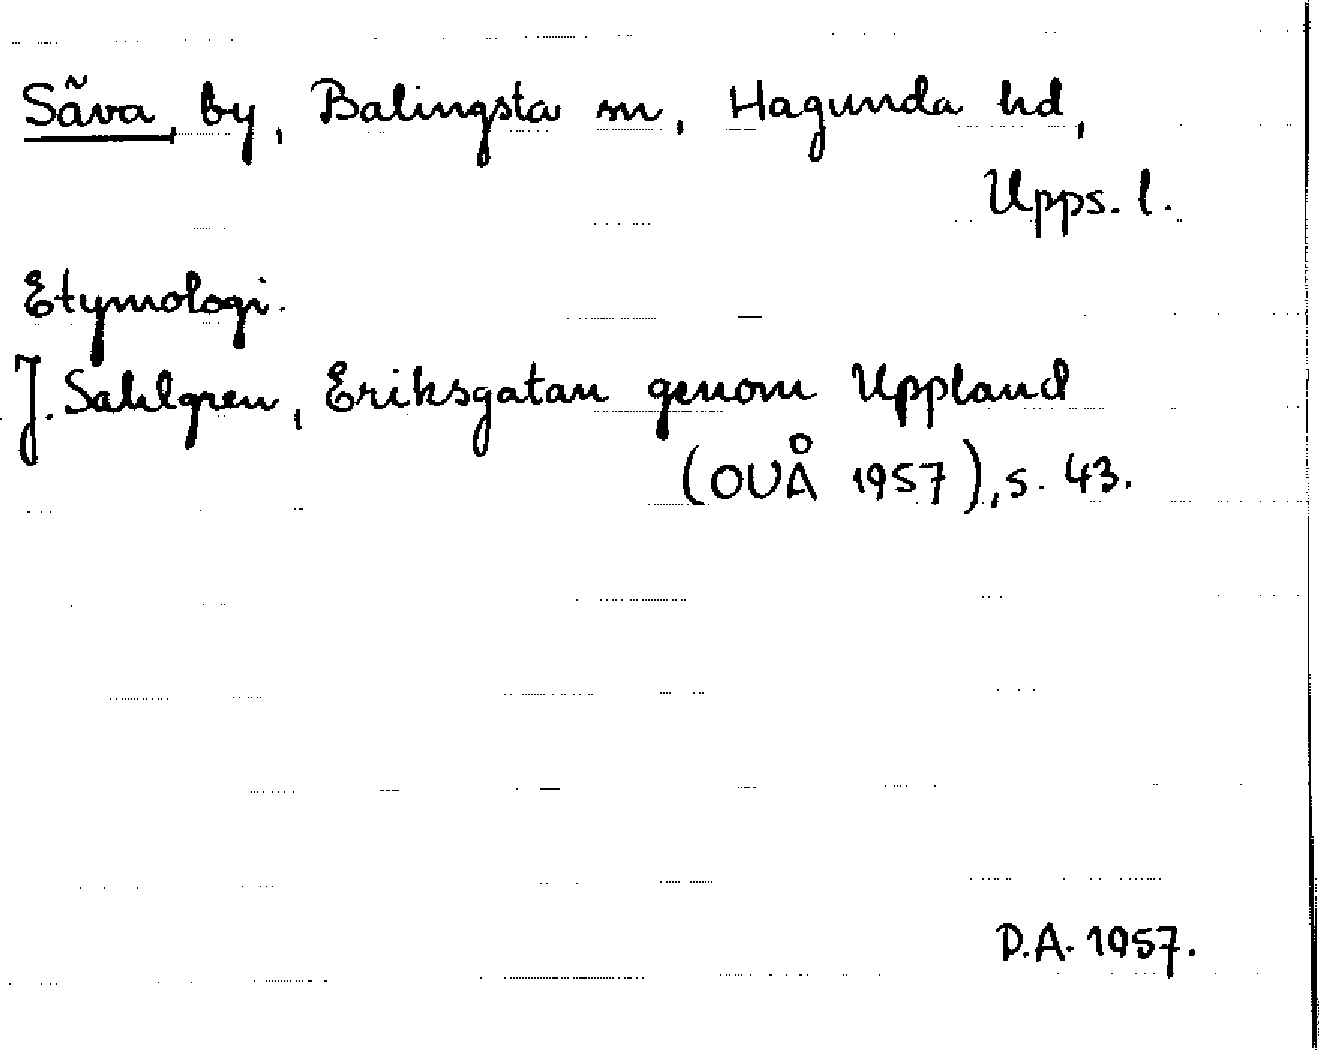 Säva by, Balingsta sn, Hagunda hd,
Upps. l.
Etymologi.
J. Sahlgren, Eriksgatan genom Uppland
(OUÅ 1957), s. 43.
D.A. 1957.